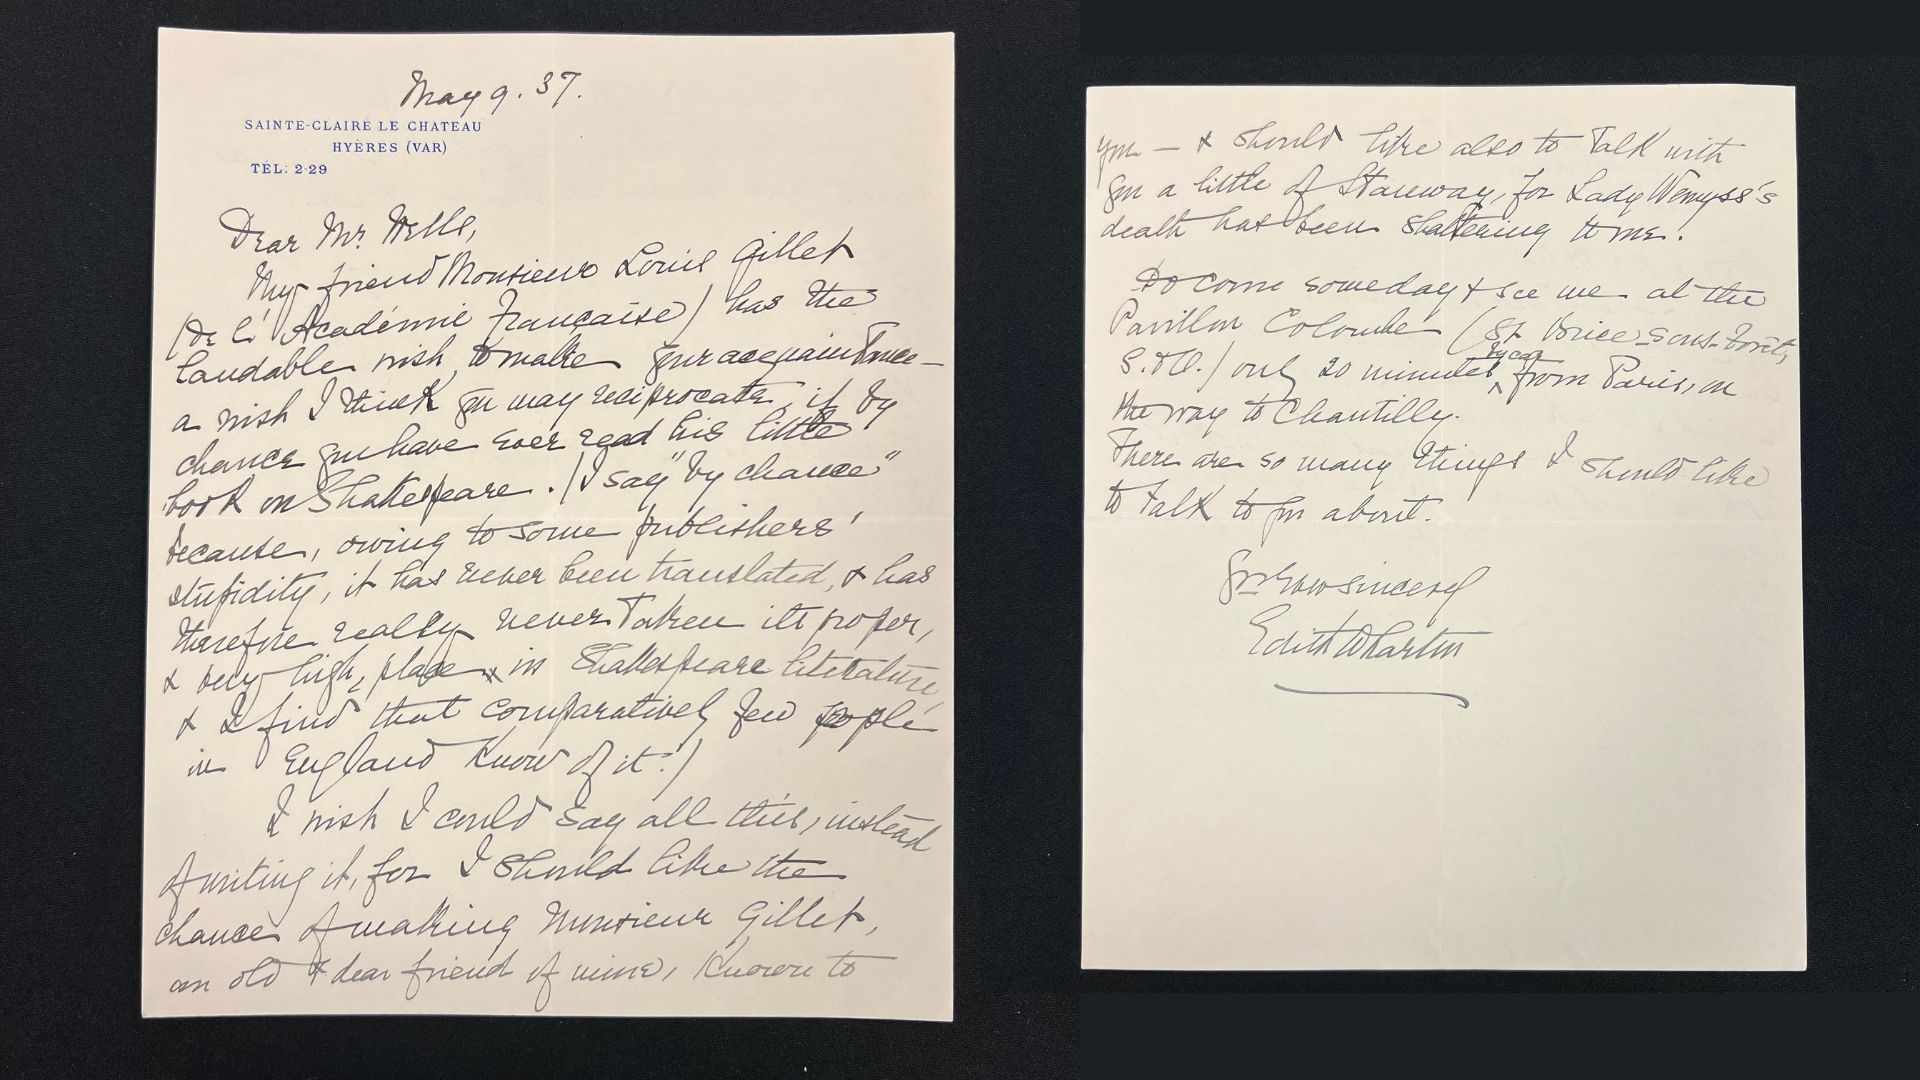 May 9. 37.
SAINTE-CLAIRE LE CHATEAU
HYÈRES (VAR)
TÉL: 2-29
Dear Mr. Wells,
My friend Monsieur Louis Gillet
(de l'Académie Française) has the
laudable wish to make your acquaintance —
a wish I think you may reciprocate, if by
chance you have ever read his little
book on Shakespeare. (I say "by chance"
because, owing to some publishers'
stupidity, it has never been translated, & has
therefore really never taken its proper,
& very high, place in Shakespeare literature
& I find that comparatively few people
in England know of it.)
I wish I could say all this, instead
of writing it, for I should like the
chance of making Monsieur Gillet,
an old & dear friend of mine, known to
you — & should like also to talk with
you a little of Stanway, for Lady Wemyss's
death has been shattering to me.
Do come someday & see me at the
Pavillon Colombe (St Brice-sous-Forêt,
S. & O.) only 20 minutes by car from Paris, on
the way to Chantilly.
There are so many things I should like
to talk to you about.
Yrs ever sincerely
Edith Wharton